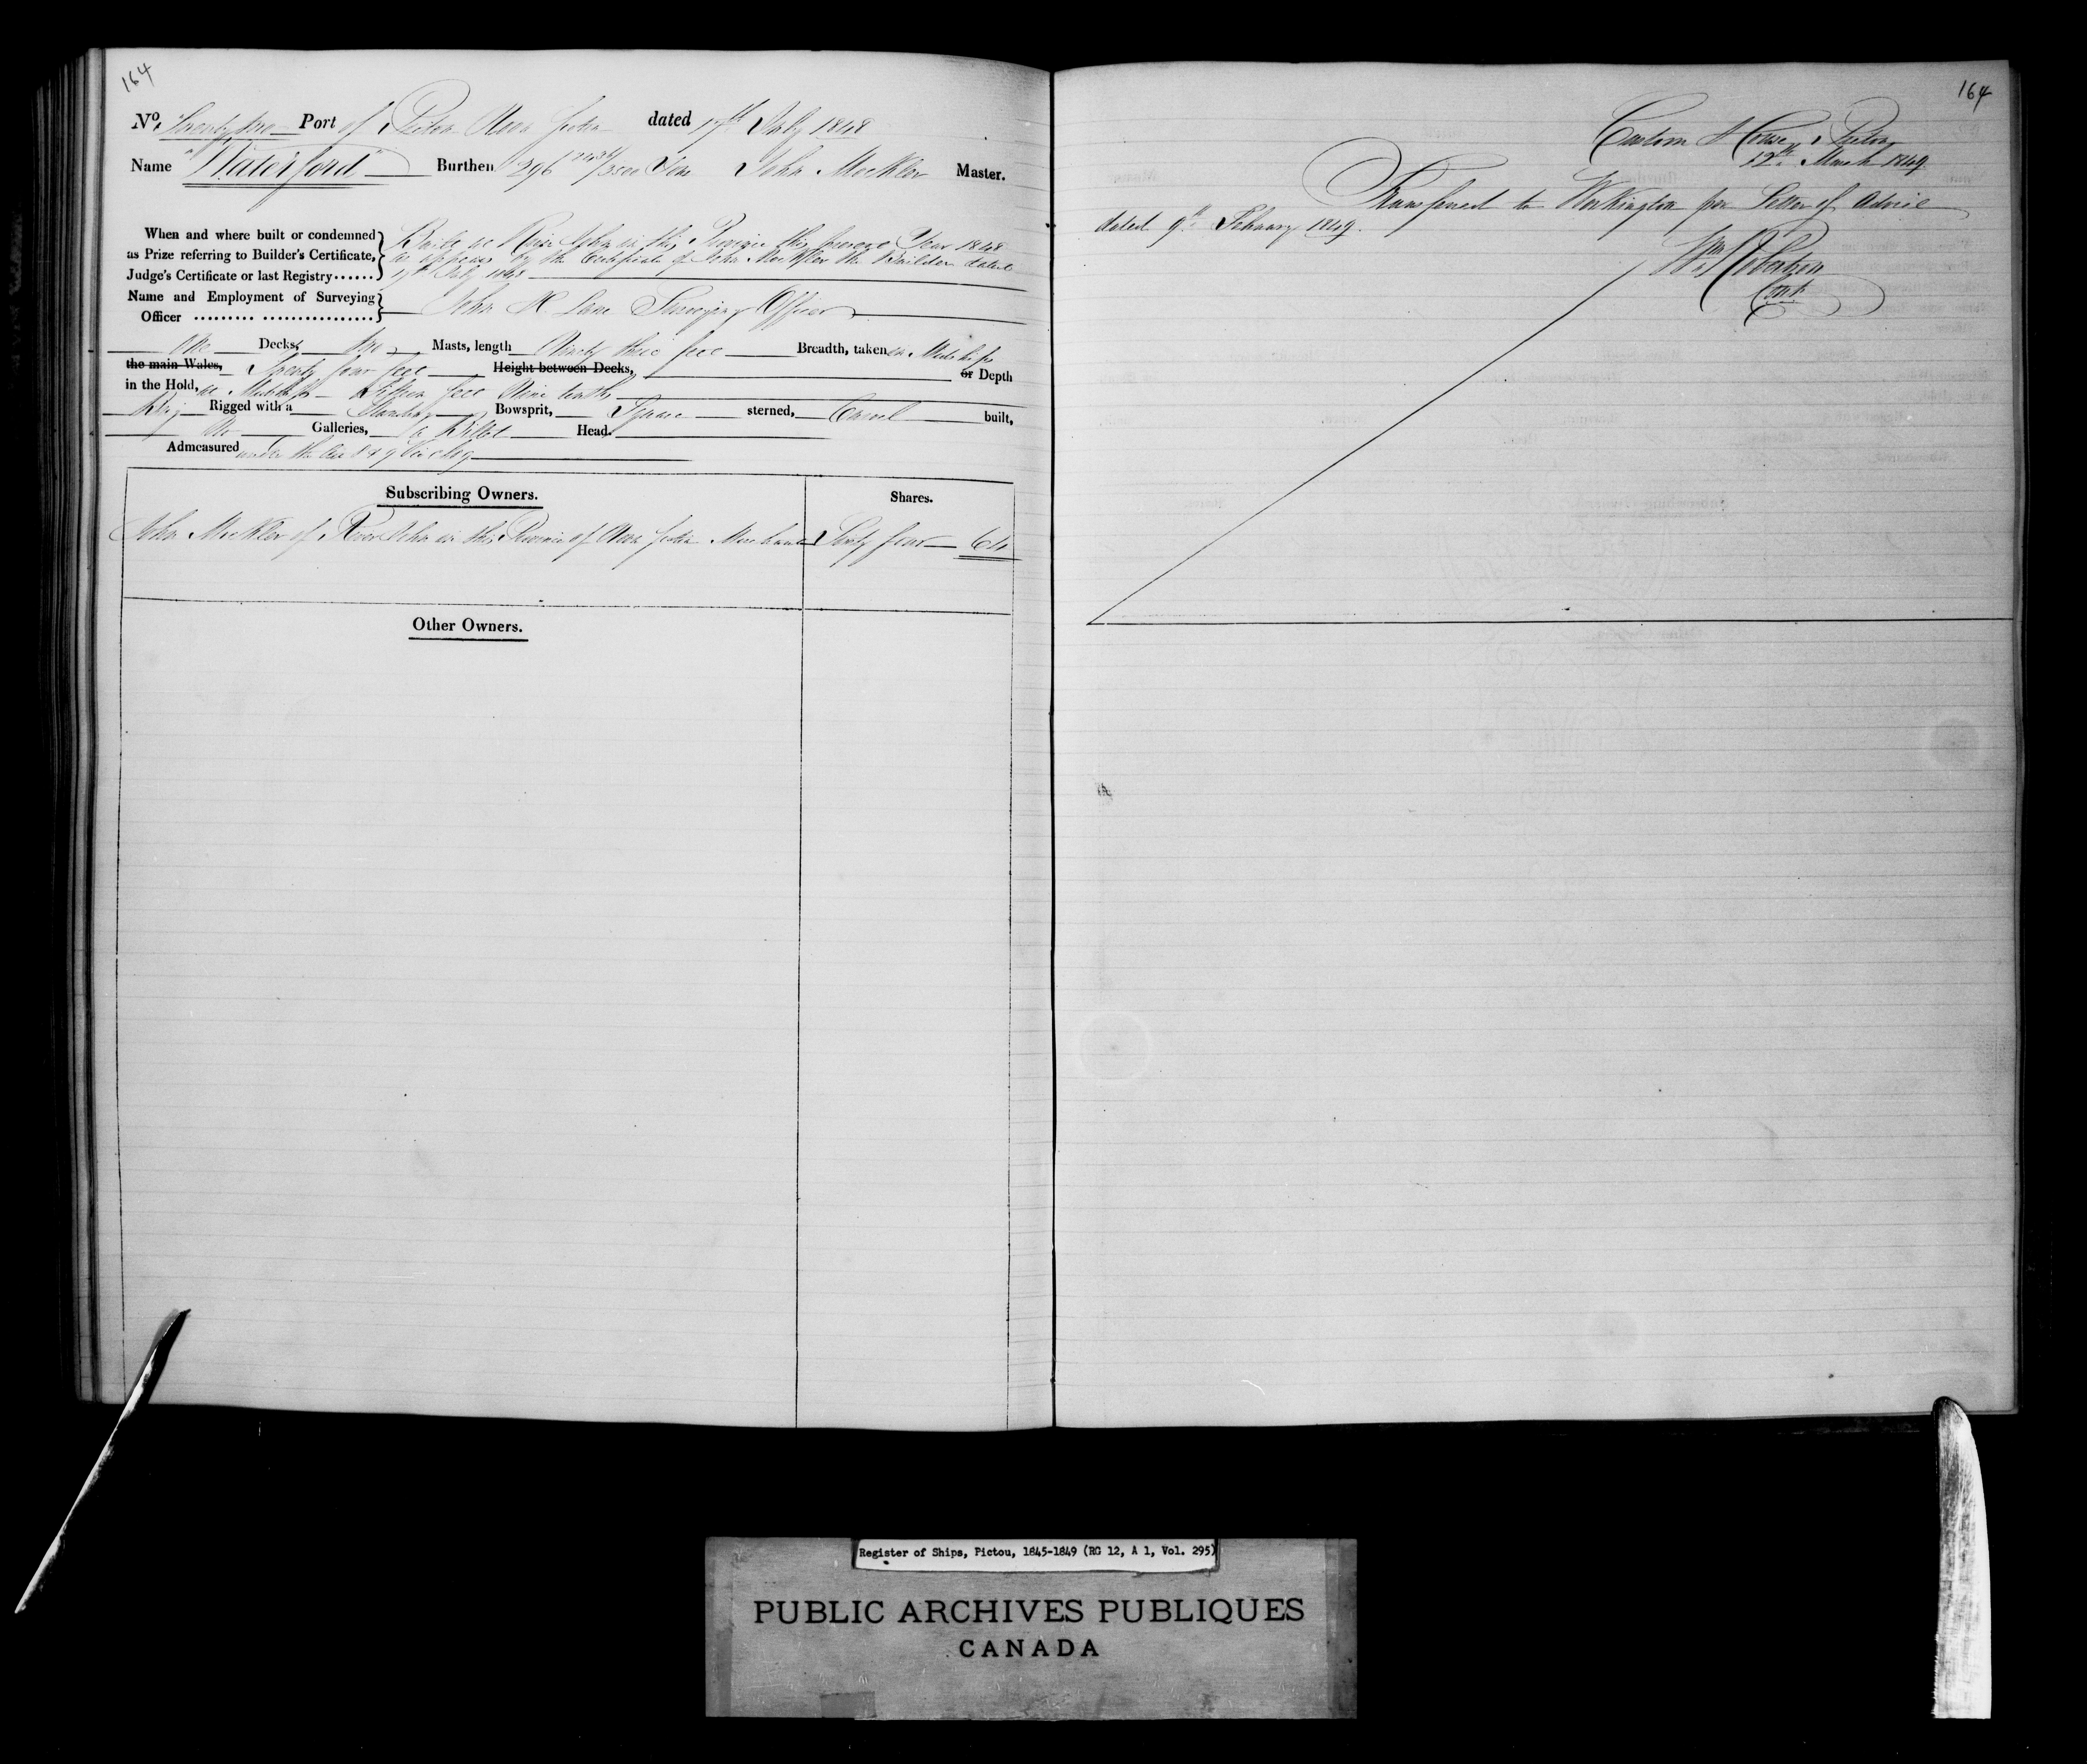 164
No. Twenty two Port of Pictou Nova Scotia dated 17th July 1848
Name "Waterford" Burthen 296 /3500 Tons John Mockler Master.
When and where built or condemned
as Prize referring to Builder's Certificate,
Judge's Certificate or last Registry......
Built at River John in this Province this present Year 1848
as appears by the Certificate of John Mockler the Builder dated
17th July 1848
Name and Employment of Surveying
Officer ......... ................
John H Lane Surveying Officer
One Decks, two Masts, length Ninety three feet Breadth, taken in Midships
the main Wales, Twenty four feet Height between Decks, or Depth
in the Hold, at Midships Fifteen feet Nine tenths
Brig Rigged with a Standing Bowsprit, Square sterned, Carvel built,
No Galleries, a Billet Head.
Admeasured under the Act 8 & 9 Vic c 89
Subscribing Owners.
Shares.
John Mockler of River John in this Province of Nova Scotia Merchant Sixty four 64
Other Owners.
164
Custom House, Pictou
12th March 1849
Transferred to Workington per Letter of Advice
dated 9th February 1849.
Wm Robertson
Cont
Register of Ships, Pictou, 1845-1849 (RG 12, A 1, Vol. 295)
PUBLIC ARCHIVES PUBLIQUES
CANADA